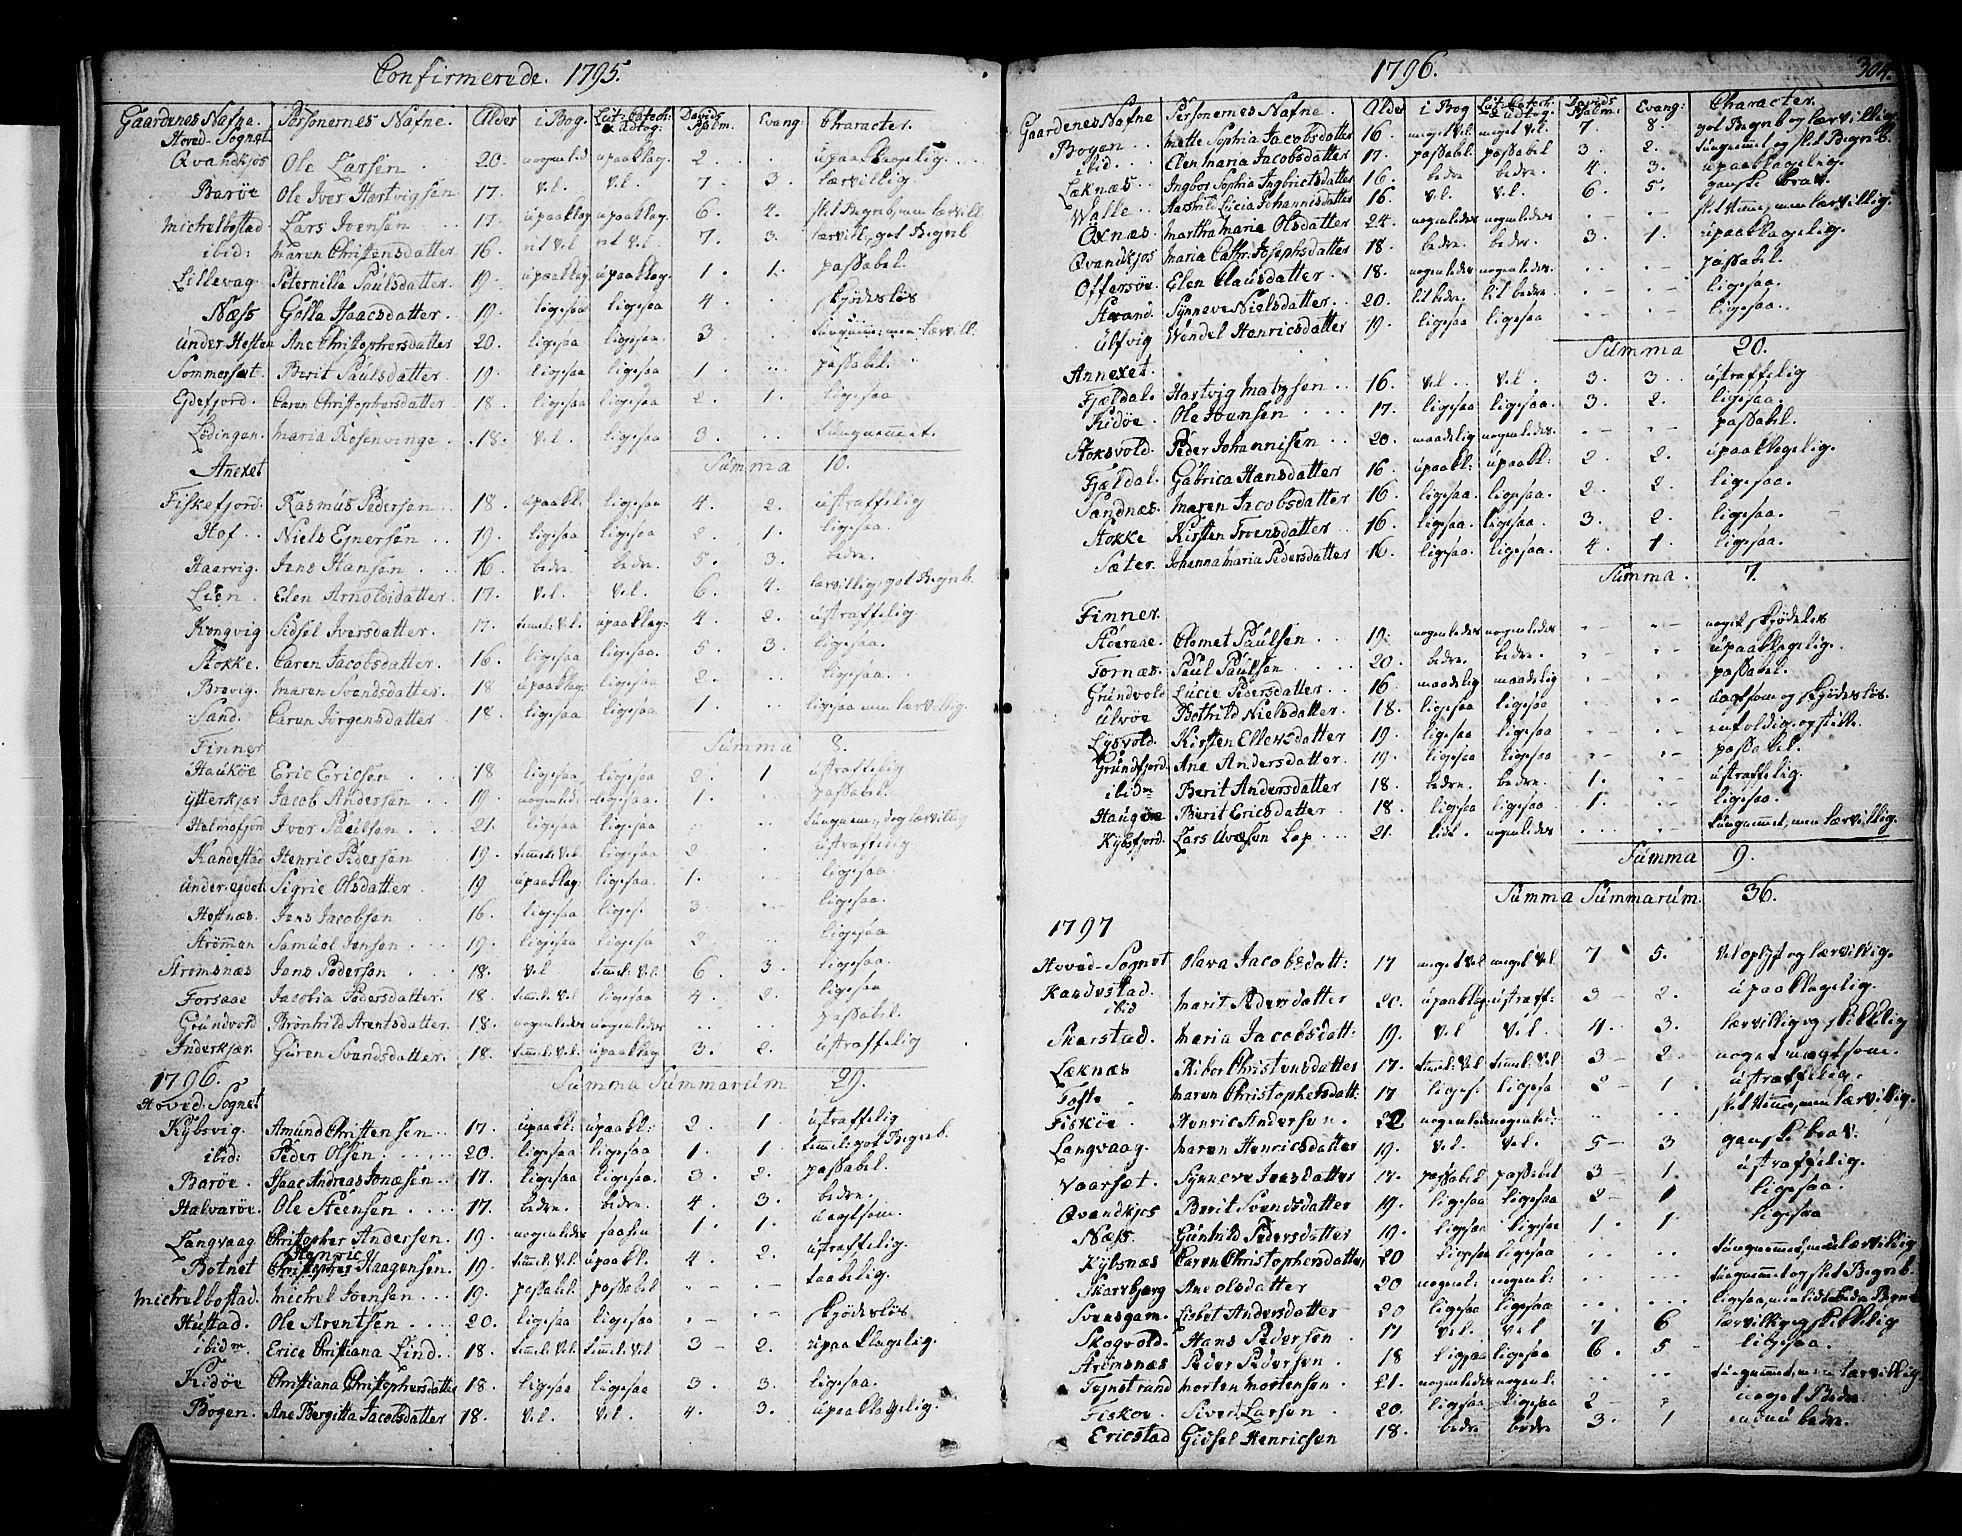 Confirmerede. 1795.
Gaardenes Nafne. Personernes Nafne. Alder i Bog. Lut: Catech: & Udtog: Davids Psalm. Evang: Character.
Hoved-Sognet
Qvandkjos Ole Larsen 20: nogenled upaaklag. 2 upaaklagelig.
Barøe Ole Iver Hartvigsen 17. vel. vel. 7. 3. lærvillig
Michelbostad Lars Joensen 17. upaaklag upaaklag. 6. 4. slet Begreb, men lærvill.
ibid: Maren Christensdatter 16. nt vel nt vel. 7. 3. lærvill, got Begreb
Lillevag Peternille Paulsdatter. 19. upaaklag upaaklag 1. 1. passabel.
Næss Golla Isaacsdatter. 19. ligesaa ligesaa. 4. skjødesløs
under Hesten Ane Christophersdatter 20. ligesaa ligesaa. 3. tungnemm: men lærvill.
Sommerset. Berit Paulsdatter. 19. ligesaa ligesaa 1. passabel.
Egdefjord. Caren Christophersdatter. 18 ligesaa ligesaa 2. 1. ligesaa
Lødingen. Maria Rosenvinge. 18. vel. ligesaa 3. tungnemmet.
Summa 10.
Anexet
Fiskefjord. Rasmus Pedersen 18. upaakl. ligesaa 4. 2. ustraffelig
Hof Niels Ejnersen 19. ligesaa ligesaa 2. 1. ligesaa
Haarvig. Jens Hansen 16 bedre. bedre. 5. 3. bedre.
Lien. Elen Arnoldsdatter. 17. vel. vel. 6. 4. lærvillig, got Begreb.
Kongvig Sidsel Iversdatter. 17. temmel: vel. upaaklag: 4. 2. ustraffelig
Stokke. Caren Jacobsdatter. 16. ligesaa ligesaa 5. 3. ligesaa.
Brevig. Maren Svendsdatter. 18 upaaklag. ligesaa 2. ligesaa.
Sand. Caren Jørgensdatter 18. ligesaa ligesaa 1. ligesaa men lærvillig.
Summa 8.
Finner
Haukøe Eric Ericsen 18 ligesaa ligesaa 2. 1 ustraffelig
Ytterkjær Jacob Andersen 19. nogenled: ligesaa. 1. passabel.
Halmofjord Iver Paulsen 21. ligesaa ligesaa tungnem:, dog lærvillig
Kandestad Henric Pedersen 19. temmel: vel ligesaa 2. ustraffelig
under: egdet Sigrie Olsdatter. 19 upaaklag. ligesaa. 1. ligesaa
Hestnæs. Jens Jacobsen 16. ligesaa liges. 3. ligesaa.
Strømman Samuel Jensen 19. ligesaa ligesa 2. ligesaa
Strømsnæs Jens Pedersen 18. vel temmel: vel. 6. 3. ligesaa.
Forsaae Jacobia Pedersdatter. 18. temmel: vel ligesaa 4. 2. ligesaa
Grundvord Brønhild Arentsdatter. 18. nogenledes nogenledes passabel.
Inderkjær. Guren Svendsdatter. 18. temmel: vel: upaaklag 3. 2. ustraffelig
Summa Summarum 29.
1796.
Hoved-Sognet
Kybsvig. Amund Christensen 17. upaakl: upaakl: 2. 1 ustraffelig
ibid: Peder Olsen. 20. ligesaa ligesaa 1. 1. temmel: got Begreb.
Barøe. Isaac Andreas Jonæsen. 17. ligesaa ligesaa. 3. 2. passabel.
Halvarøe. Ole Steensen 17. bedre. bedre. 4. 3. bedre.
Langvaag Christopher Andersen. 19. nogenledes saasom 1. 1. uagtsom.
Botnet Henric Haagensen. 19. temmel: vel. upaakl. 4. 2. ustraffelig.
Michelbostad. Michel Joensen 19. passabel passabel taabelig.
Hustad. Ole Arentsen 20. ligesaa ligesaa skjødesløs
ibidm Erice Christiana Lind. 18. temmel: vel. temmel: vel 3 2. upaaklagelig.
Kidøe Christiana Christophersdatter 18. ligesaa ligesaa 3. 3. ligesaa.
Bogen. Ane Bergitta Jacobsdatter 18. vel. vel. 4. 3. upaaklagelig.
1796.
304.
Gaardenes Nafne Personernes Nafne. Alder i Bog Lut: Catech: & udtog: Davids Psalm. Evang: Character.
Bogen Mette Sophia Jacobsdatter 16. meget vel. meget vel. 7. 8. got Begreb og lærvillig
ibid. Elen Maria Jacobsdatter 17. passabl. passabel 3. 2. tungnemmet og slet Begreb.
Læknæs Ingbor Sophia Ingbrictsdatter 16. bedre bedre. 4. 3. upaaklagelig.
Walle Aarshild Lucia Johannisdatter 16 vel. vel. 6. 5. ganske brav.
Oxnæs Martha Maria Olsdatter 24. nogenledes nogenledes slet Nemme, men lærvillig.
Qvandkjos Maria Cathr: Josephsdatter 18. bedre. bedre. 3. 1. upaaklagelig.
Offersøe. Elen Clausdatter 18. nogenledes nogenledes. passabel.
Strand. Synneve Nielsdatter 20. lit bedre. lit bedre. ligesaa.
Ulfvig Wendel Henricsdatter 19. ligesaa ligesaa ligesaa.
Summa 20.
Annexet.
Fjældal. Hartvig Matysen 16. vel vel. 3. 3. ustraffelig
Kidøe Ole Joensen 17. ligesaa ligesaa. 3. 2. ligesaa.
Stoksvold. Peder Johannisen 20. maadelig nogenledes. passabel.
Fjældal. Gabrica Hansdatter 16. upaakl: upaakl: 2. 2. upaaklagelig.
Sandnæs. Maren Jacobsdatter 16. ligesaa. ligesaa. 2. 2. ligesaa.
Stokke Kirsten Troensdatter 16. ligesaa. ligesaa. 3. 2. ligesaa.
Sæter. Johanna Maria Pedersdatter 16. ligesaa. ligesaa. 4. 1. ligesaa.
Summa. 7.
Finner
Stoeraae. Clemet Paulsen 19. nogenledes nogenledes noget skjødesløs
Tornæs. Paul Paulsen 20. bedre. bedre. upaaklagelig.
Grundvold Lucie Pedersdatter 16. maadelig maadelig passabel.
Ulvøe Bothild Nielsdatter 18. ligesaa ligesaa uagtsom og skjødesløs.
Lysvold. Kirsten Ellevsdatter 19. ligesaa ligesaa enfoldig, og stille.
Grundfjord. Ane Andersdatter. 19. ligesaa ligesaa passabel.
ibidm Berit Andersdatter 18. bedre bedre. 1. ustraffelig.
Haugøe Berit Ericsdatter 18. ligesaa ligesaa 1. ligesaa.
Kybsfjord. Lars Uvæsen Lap. 21. lidt. nogenledes tungnemmet, men lærvillig.
Summa 9.
Summa Summarum. 36.
1797
Hoved-Sognet Olava Jacobsdatt: 17 meget vel meget vel 7 5. vel oplyst og lærvillig.
Kandestad.
ibid Marit Pedersdatter 20. upaaklag: ustraff: 3 2. upaaklagelig.
Skarstad. Maria Jacobsdatt: 19. vel vel. 4. 3. lærvillig og skikkelig
Læknæs Ribor Christensdatter 17. temmel: vel temmel: vel 3 2 noget magtsom.
Tofte Maren Christophersdatt: 17 liges. ligesa 2 1. ustraffelig.
Fiskøe Henric Andersen 22 nogenledes nogenled: slet Nemme, men lærvillig.
Langvaag. Maren Henricsdatter 19. vel. vel. 5 3 ganske brav.
Vaarsæt. Synneve Jensdatter 17. passabel passabel 3 1. ustraffelig.
Qvandkjos Berit Svendsdatter 19. ligesaa ligesaa 2 1 ligesaa.
Næss. Gunhild Pedersdatter 19. ligesaa ligesaa 1. 1. ligesaa
Kybsnæs Caren Christophersdatter 20 ligesaa ligesaa tungnemmet, men lærvillig
Skarrbjerg Ane Olsdatter 20 nogenl: nogenl: tungnemmet og slet Begreb.
Svensgam. Lisbet Andersdatter 20 ligesaa ligesaa
Skogvold. Hans Pedersen 17 vel. vel 7 6 lærvillig, skikkelig
Strømsnæs Peder Pedersen 18 ligesaa ligesaa 6. 5 ligesaa.
Tejnstrand Morten Mortensen. 21. nogenledes nogenl: tungnemmet, men lærvillig
Fiskøe. Sivert Larsen 20. ligesaa ligesaa 2 noget Bedre
Ericstad Gidsel Henricsen 18. bedre bedre 3. 1 endnu bedre.